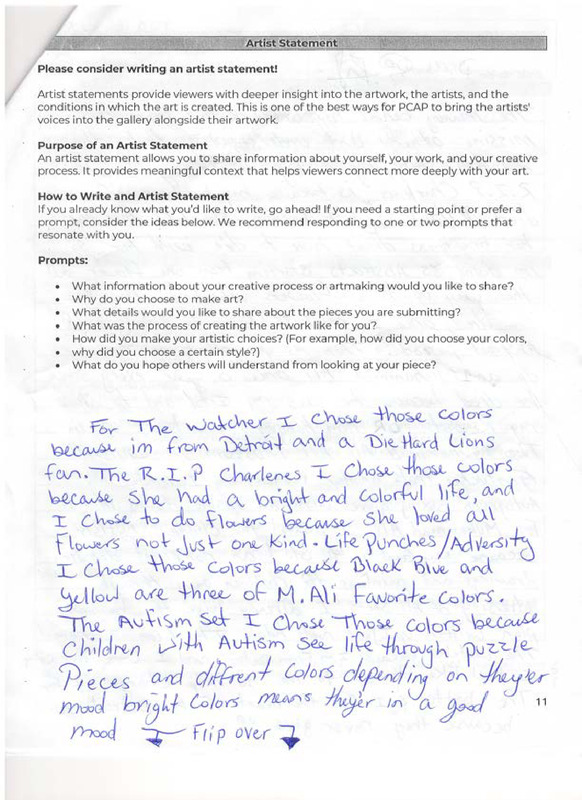 Artist Statement
Please consider writing an artist statement!
Artist statements provide viewers with deeper insight into the artwork, the artists, and the
conditions in which the art is created. This is one of the best ways for PCAP to bring the artists'
voices into the gallery alongside their artwork.
Purpose of an Artist Statement
An artist statement allows you to share information about yourself, your work, and your creative
process. It provides meaningful context that helps viewers connect more deeply with your art.
How to Write and Artist Statement
If you already know what you'd like to write, go ahead! If you need a starting point or prefer a
prompt, consider the ideas below. We recommend responding to one or two prompts that
resonate with you.
Prompts:
• What information about your creative process or artmaking would you like to share?
• Why do you choose to make art?
• What details would you like to share about the pieces you are submitting?
• What was the process of creating the artwork like for you?
• How did you make your artistic choices? (For example, how did you choose your colors,
• why did you choose a certain style?)
• What do you hope others will understand from looking at your piece?
For The Watcher I Chose those colors
because im from Detroit and a Die Hard Lions
fan. The R.I.P Charlenes I Chose those colors
because She had a bright and colorful life, and
I Chose to do flowers because She loved all
Flowers not Just one Kind. Life Punches/Adversity
I Chose those Colors because Black Blue and
Yellow are three of M. Ali Favorite colors.
The Autism Set I Chose Those colors because
Children With Autism See life through puzzle
Pieces and diffrent Colors depending on theyer
mood bright Colors means theyer in a good
11
mood Flip over